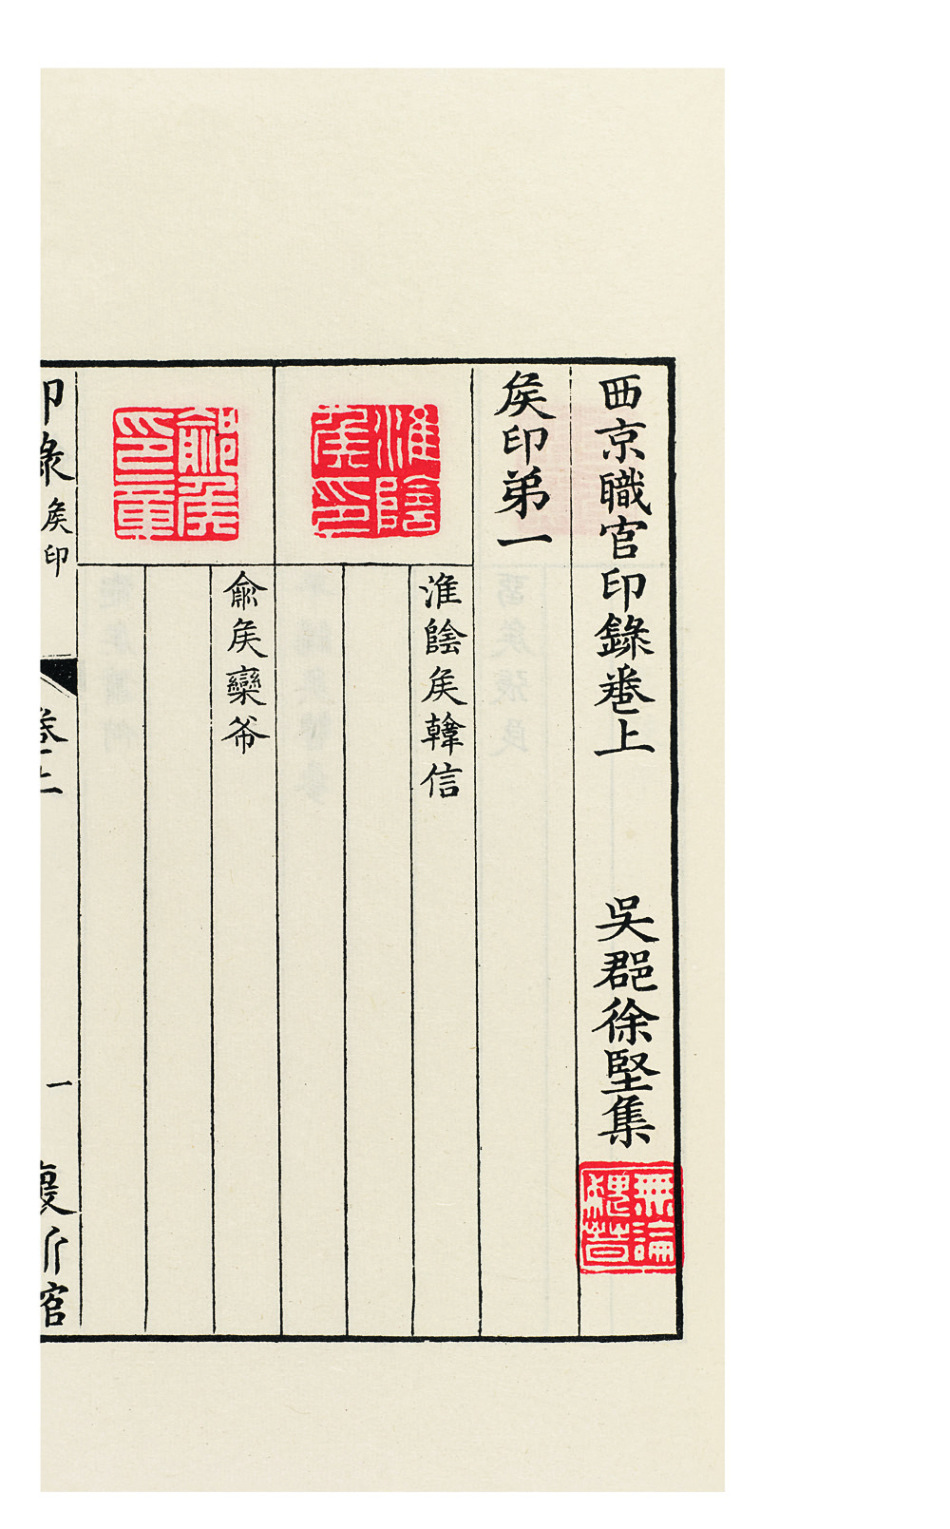 西京職官印錄卷上
吳郡徐堅集
無論魏晉
矦印弟一
淮陰矦印
淮陰矦韓信
鄃矦印章
俞矦欒布
印錄
矦印
卷上
一